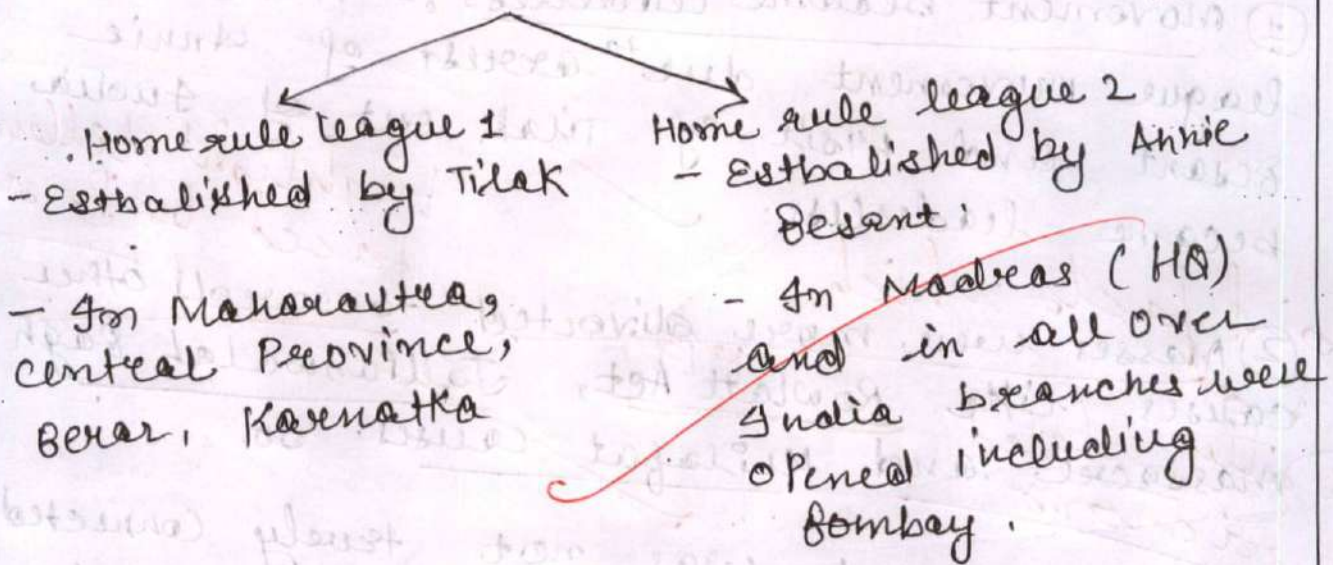 Home rule league 1
- Estbalished by Tilak
- In Maharastra,
central Province,
Berar, Karnatka
Home rule league 2
- Estbalished by Annie
Besent.
- In Madras (HQ)
and in all over
India branches were
opened including
Bombay.